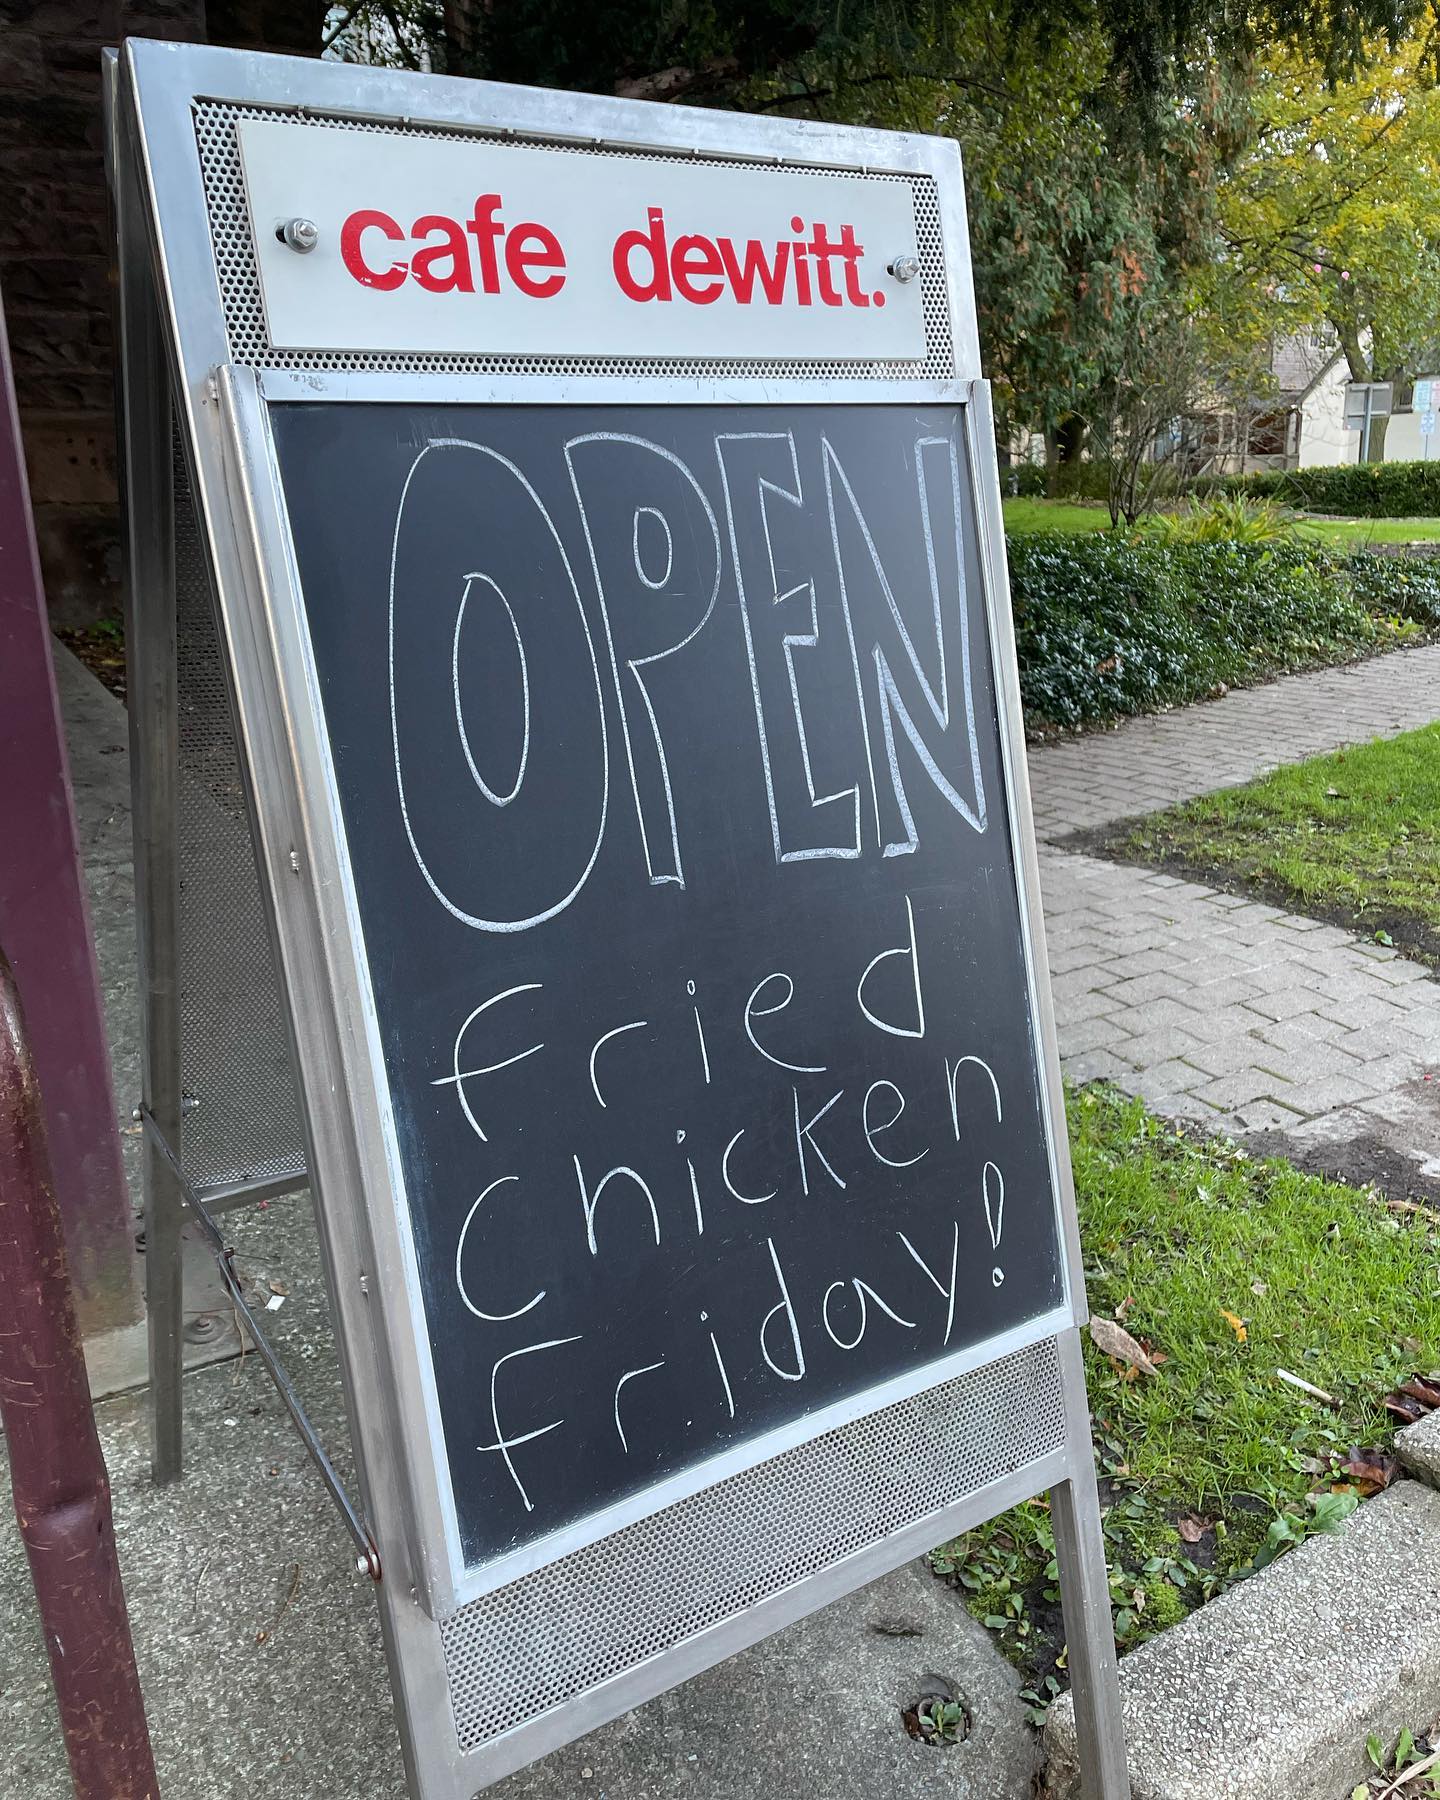 cafe dewitt.
OPEN
Fried
Chicken
Friday!